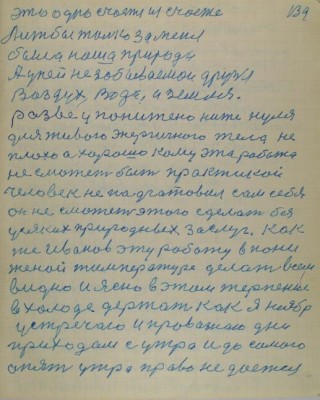 это одно счастья счастье 139
Лиш бы только заменя
была наша природа
А у ней незабываемои друзья
Воздух, вода, а земля.
разве у понижено ниже нуля
для живого энергичного тела не
плохо а хорошо кому эта работа
не сможет быт практикой
человек не падготовил сам себя
он не сможет этого сделат без
усяких природных заслуг. Как
же Иванов эту работу в пони
женой температуре делат всем
видно и ясно в этом терпение
в холоде держат как я ноябр
устречаю и провожаю дни
приходам с утра и до самого
опят утра право не дается